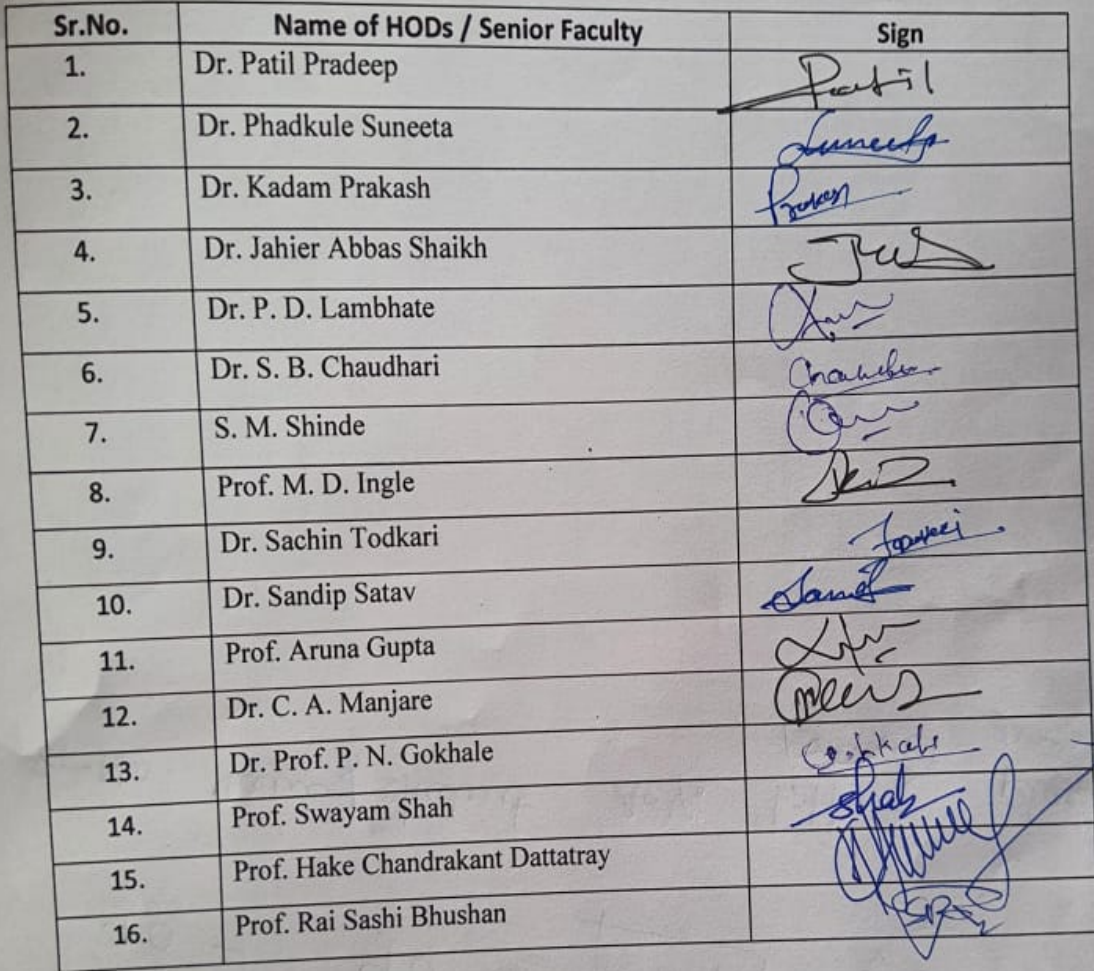 Sr.No. Name of HODs / Senior Faculty Sign
1. Dr. Patil Pradeep Patil
2. Dr. Phadkule Suneeta Suneeta
3. Dr. Kadam Prakash Prakash
4. Dr. Jahier Abbas Shaikh
5. Dr. P. D. Lambhate
6. Dr. S. B. Chaudhari
7. S. M. Shinde
8. Prof. M. D. Ingle
9. Dr. Sachin Todkari
10. Dr. Sandip Satav
11. Prof. Aruna Gupta
12. Dr. C. A. Manjare
13. Dr. Prof. P. N. Gokhale
14. Prof. Swayam Shah Shah
15. Prof. Hake Chandrakant Dattatray
16. Prof. Rai Sashi Bhushan